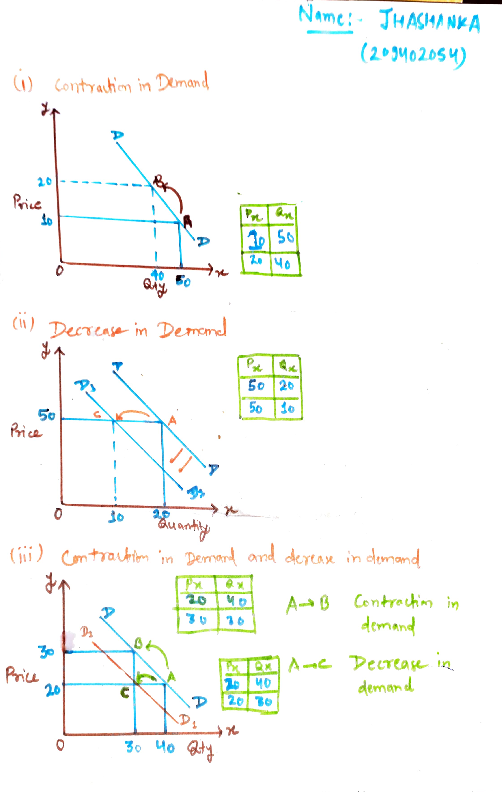 Name:- JHASHANKA
(209402054)
(i) Contraction in Demand
y
D
20
B
Price
10
A
D
0
40
50
x
Qty
Px Qx
10 50
20 40
(ii) Decrease in Demand
y
D
D1
50
C
A
Price
D
D1
0
10
20
x
Quantity
Px Qx
50 20
50 10
(iii) Contraction in Demand and decrease in demand
y
D
D1
30
B
Price
20
C
A
D
D1
0
30
40
Qty
x
Px Qx
20 40
30 30
A→B Contraction in
demand
Px Qx
20 40
20 30
A→C Decrease in
demand